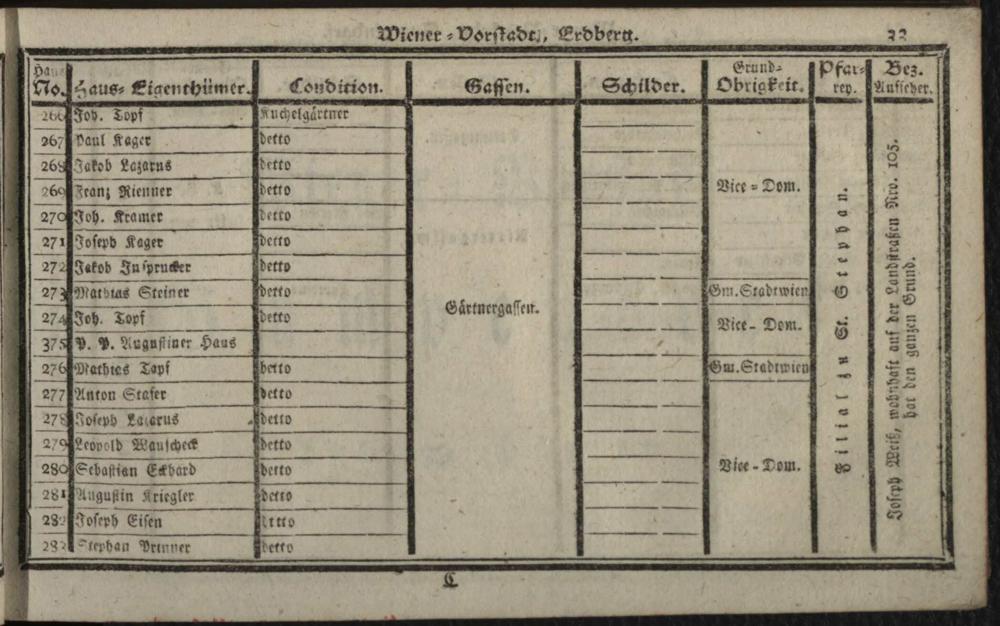 Wiener-Vorstadt, Erdberg. 33
Haus No. Haus-Eigenthümer. Condition. Gassen. Schilder. Grund-Obrigkeit. Pfar-rey. Bez. Aufseher.
266 Joh. Topf Kuchelgärtner
267 Paul Kager detto
268 Jakob Lazarus detto
269 Franz Rienner detto Vice-Dom.
270 Joh. Kramer detto
271 Joseph Kager detto
272 Jakob Insprucker detto
273 Mathias Steiner detto Gm. Stadtwien
Gärtnergassen.
274 Joh. Topf detto Vice-Dom.
375 P. P. Augustiner Haus
276 Mathies Topf detto Gm. Stadtwien
277 Anton Staser detto
278 Joseph Lazarus detto
279 Leopold Wauscheck detto
280 Sebastian Eckhard detto Vice-Dom.
281 Augustin Kriegler detto
282 Joseph Eisen detto
283 Stephan detto
Filial zu St. Stephan.
Joseph Weiß, wohnhaft auf der Landstraßen Nro. 105.
hat den ganzen Grund.
C